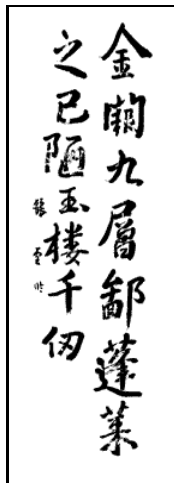 金闕九層鄙蓬莱
之已陋玉楼千仞